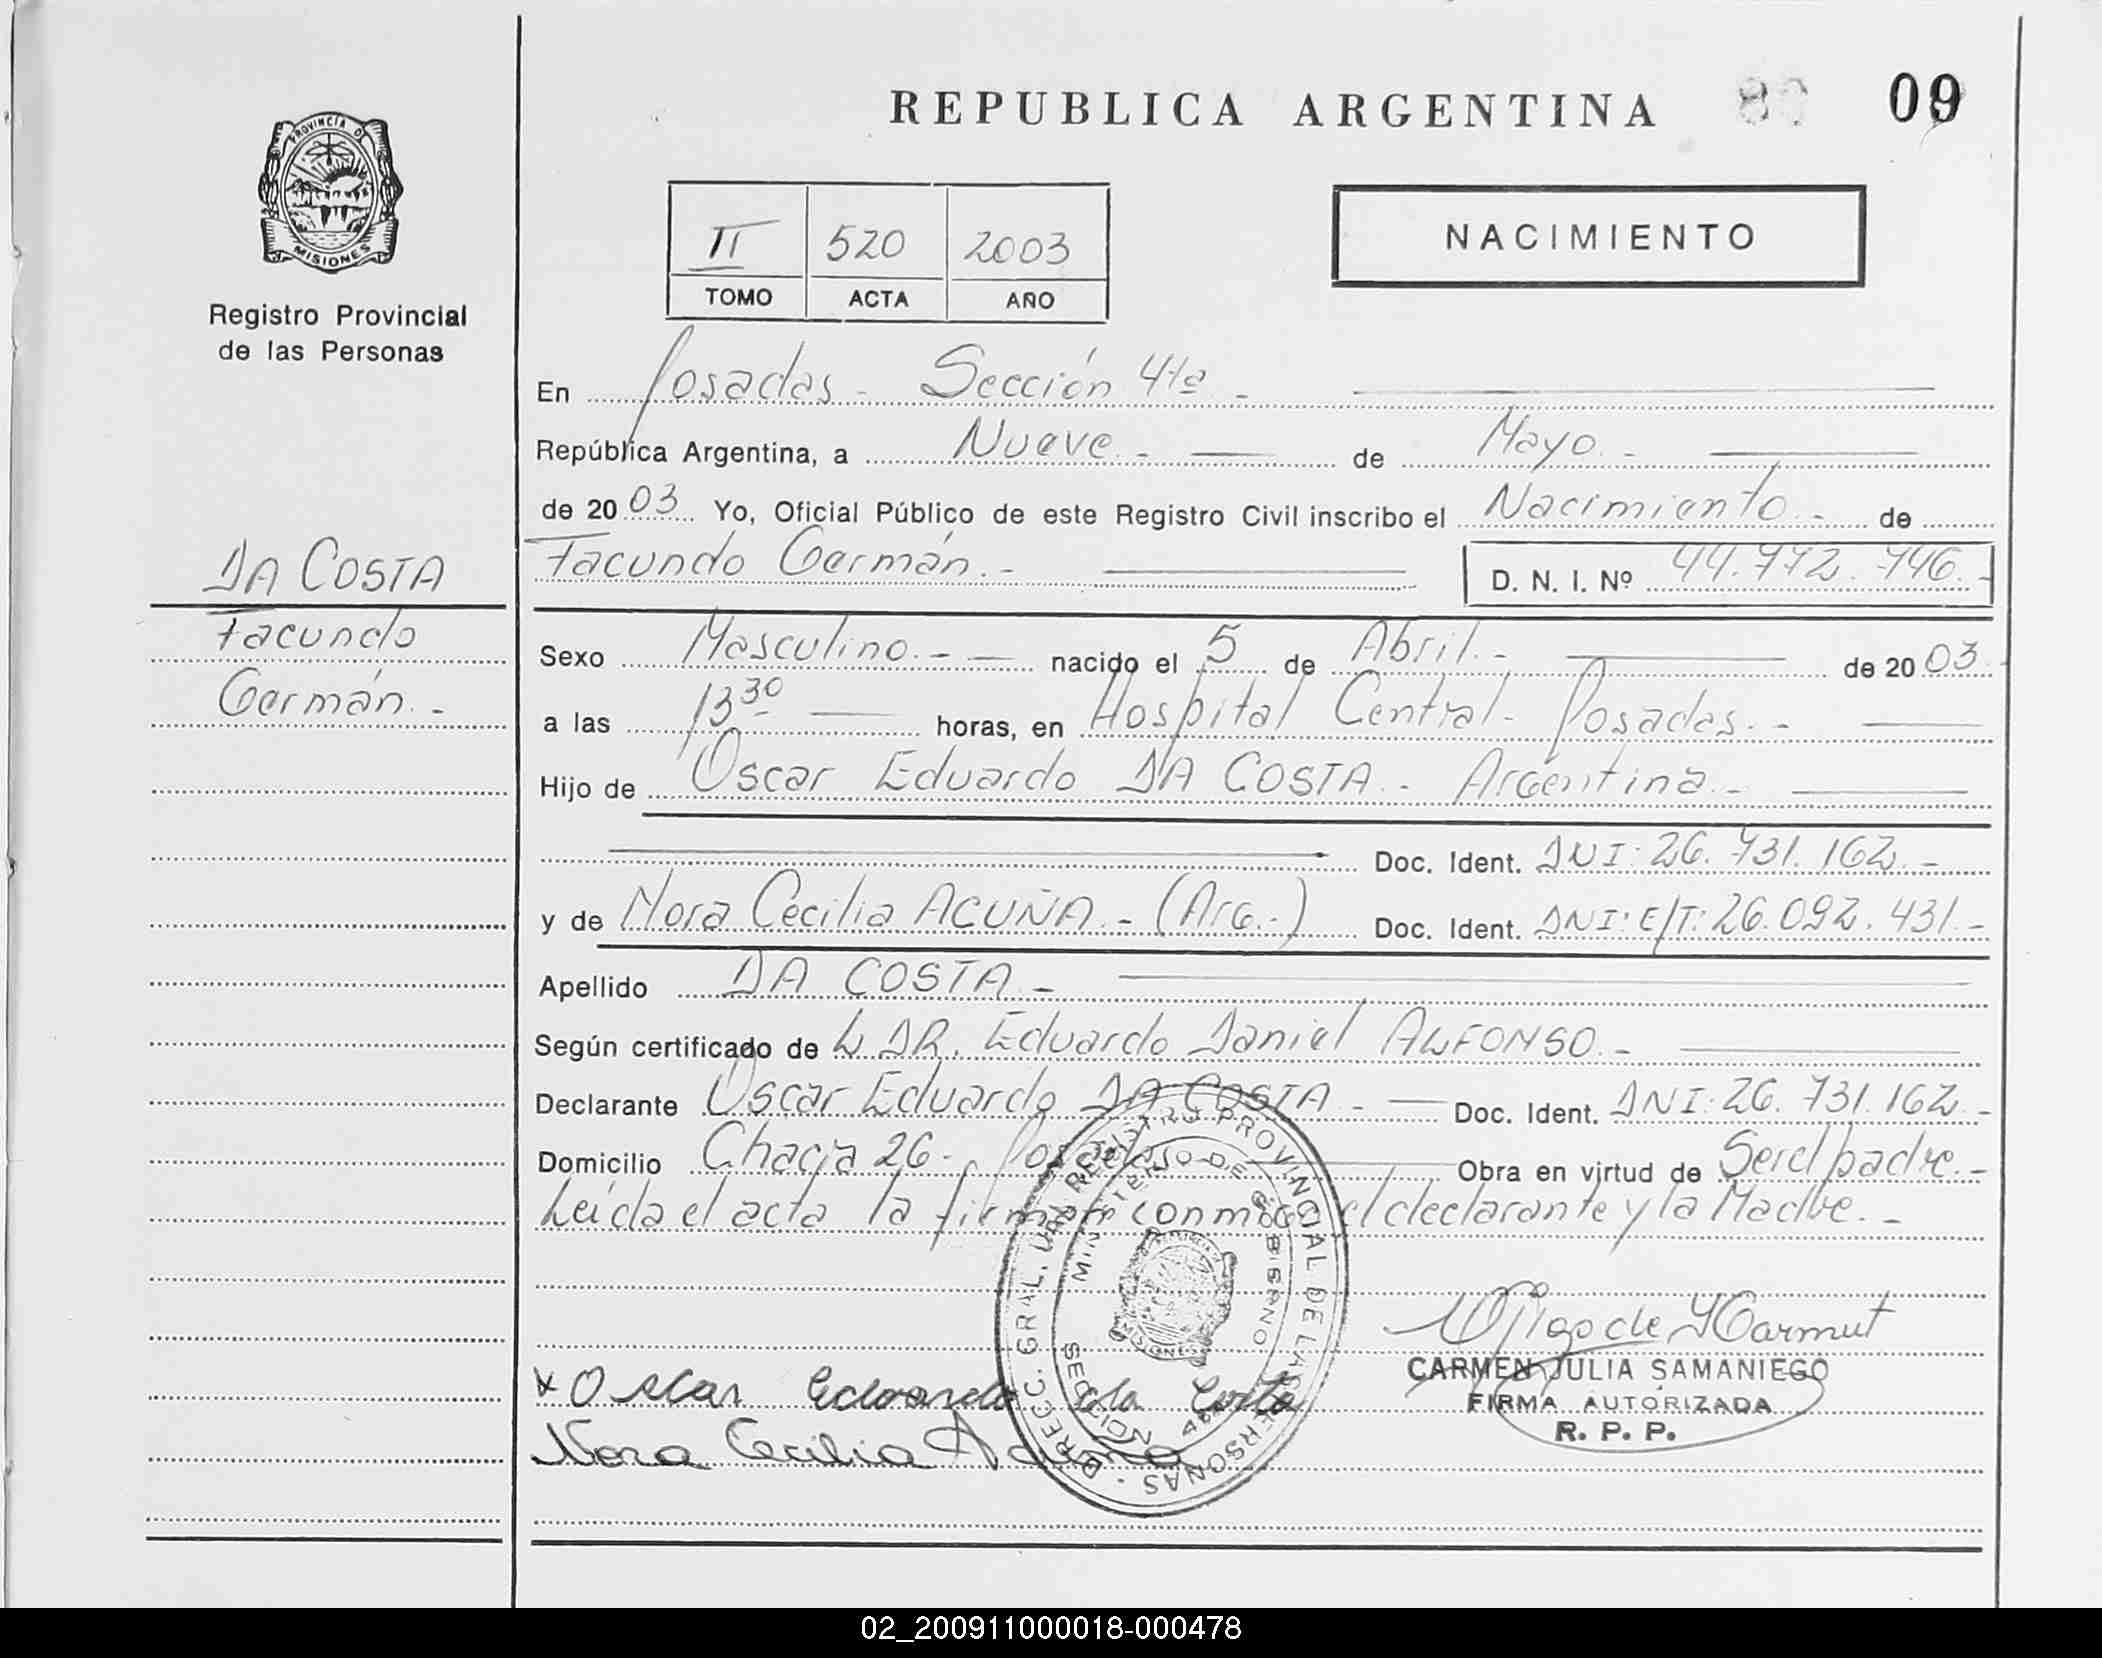 REPUBLICA ARGENTINA 09
PROVINCIA DE
MISIONES
Registro Provincial
de las Personas
II 520 2003
TOMO ACTA AÑO
NACIMIENTO
En Posadas - Sección 4ta -
República Argentina, a Nueve - de Mayo. -
de 2003 Yo, Oficial Público de este Registro Civil inscribo el Nacimiento. - de
Facundo Germán. - D. N. I. Nº 44.772.746.-
DA COSTA
Facundo
Germán. -
Sexo Masculino. - nacido el 5 de Abril. - de 2003.
a las 13 30 horas, en Hospital Central - Posadas. -
Hijo de Oscar Eduardo DA COSTA. - Argentina. -
Doc. Ident. DNI: 26.731.162. -
y de Nora Cecilia ACUÑA. - (Arg.-) Doc. Ident. DNI: E/T: 26.092.431.-
Apellido DA COSTA. -
Según certificado de L DR. Eduardo Daniel ALFONSO. -
Declarante Oscar Eduardo DA COSTA. - Doc. Ident. DNI: 26.731.162. -
Domicilio Chacra 26 - Posadas Obra en virtud de Ser el padre. -
Leída el acta la firman conmigo el declarante y la Madre. -
DIRECC. GRAL. DEL REGISTRO PROVINCIAL DE LAS PERSONAS
MINISTERIO DE GOBIERNO
SECCION 4ta
MISIONES
CARMEN JULIA SAMANIEGO
FIRMA AUTORIZADA
R. P. P.
x Oscar Eduardo da Costa
Nora Cecilia Acuña
02_200911000018-000478